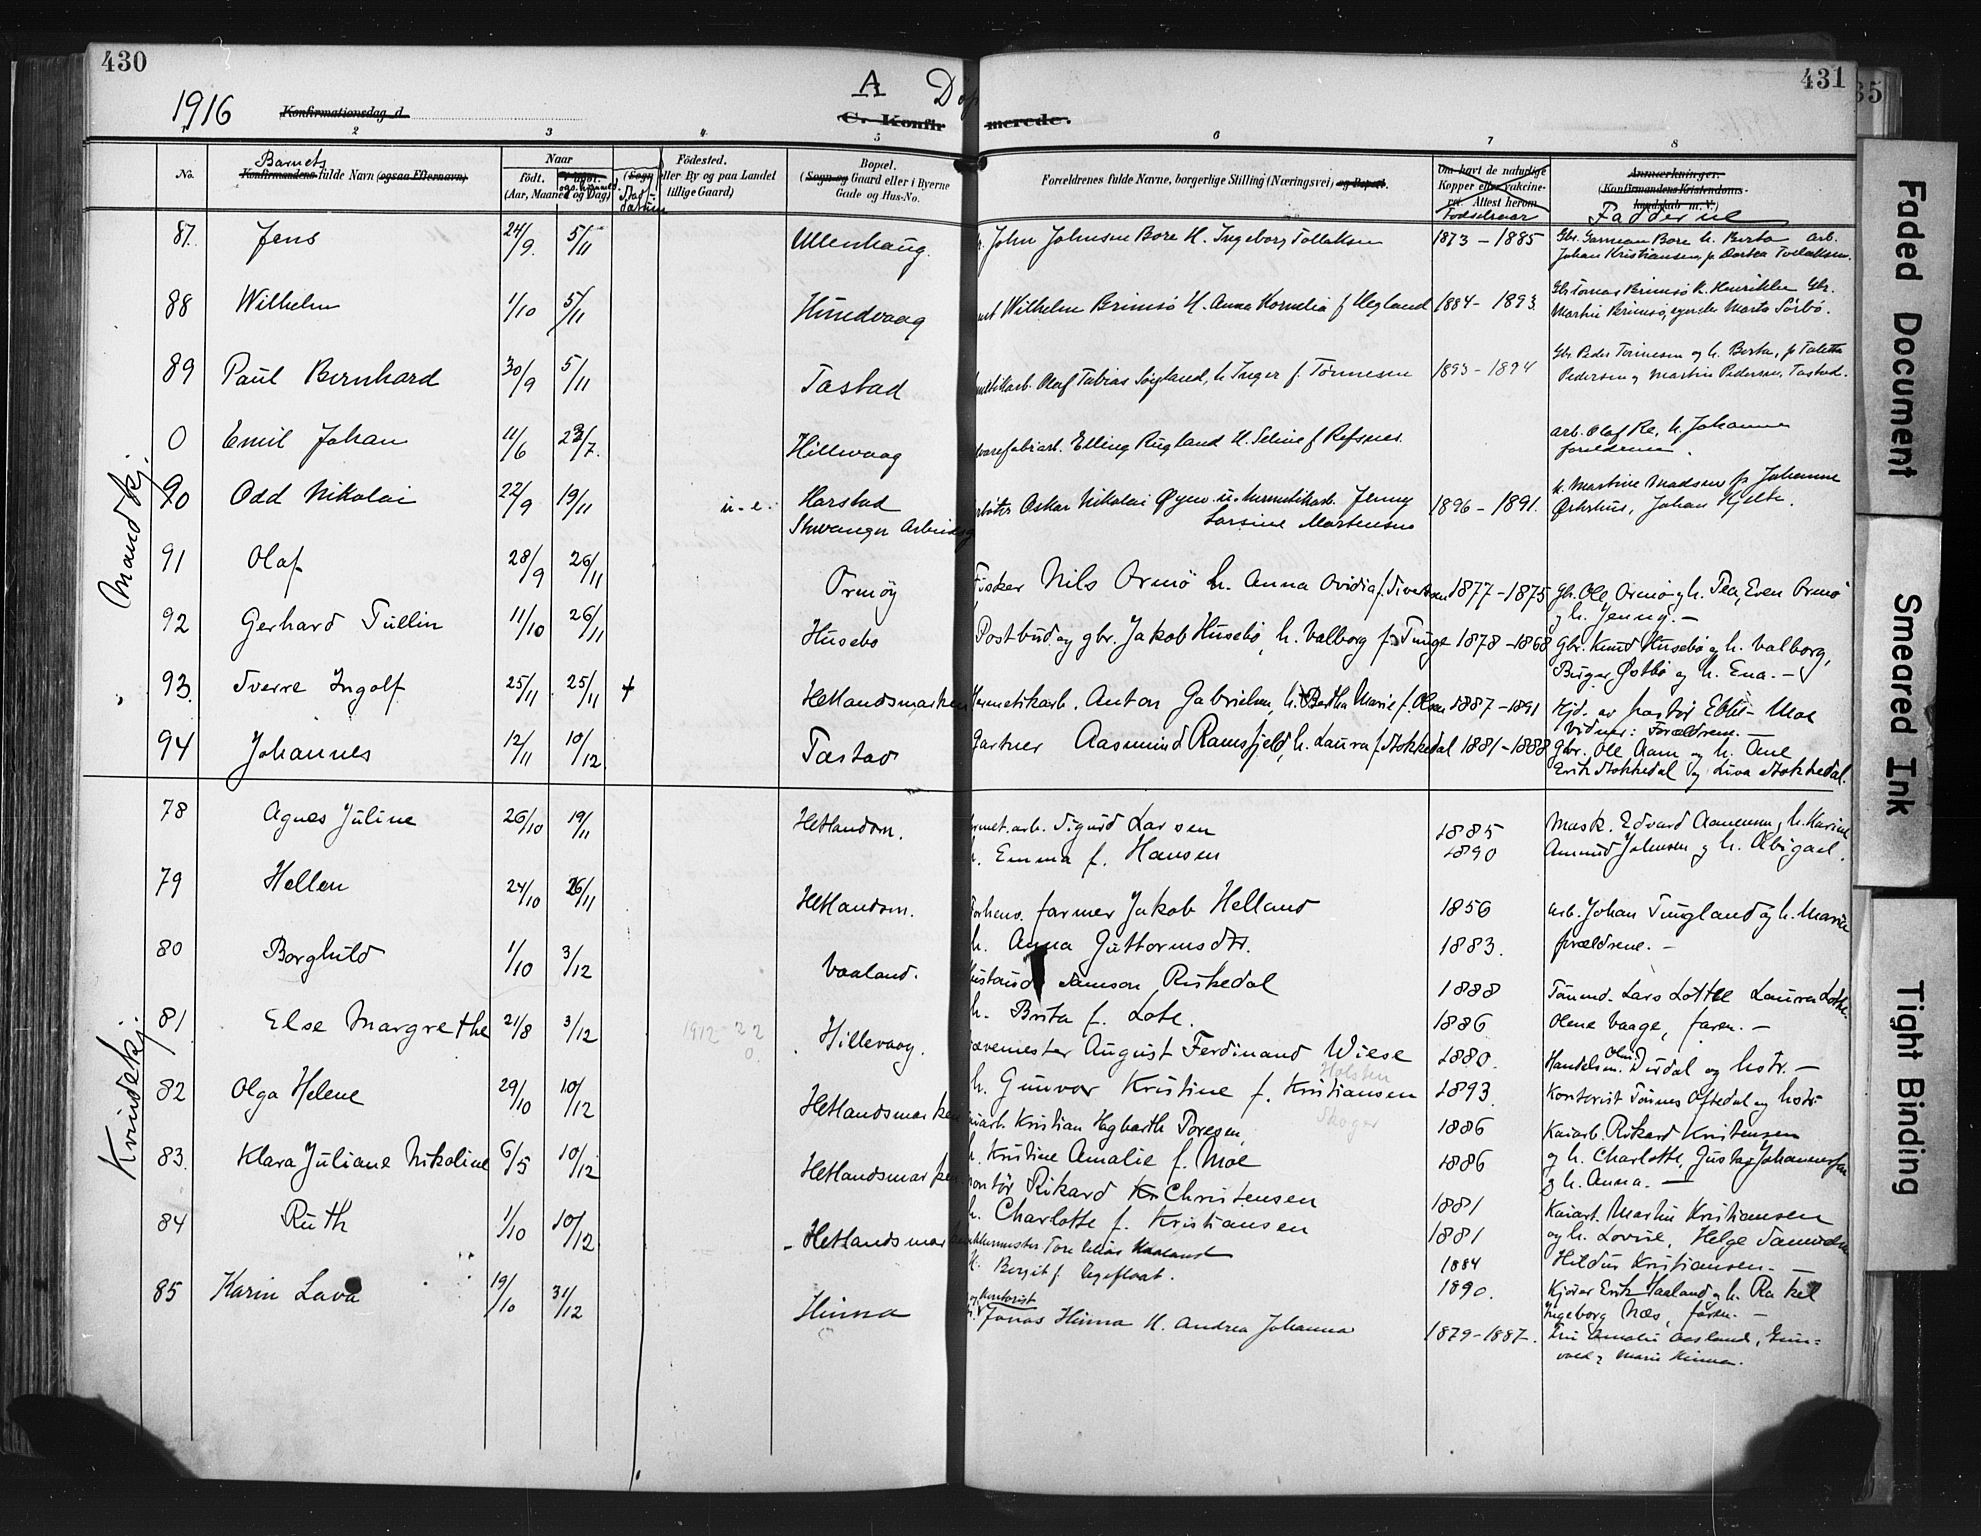 430
431
35
1916
A Döp
Konfirmationsdag d.
C. Konfirmerede.
1
2
3
4
5
6
7
8
No.
Barnets
Konfirmandens fulde Navn (ogsaa Efternavn)
Naar
født. (Aar, Maaned og Dag)
Födested.
(Sogn eller By og paa Landet tillige Gaard)
Bopæl.
(Sogn og Gaard eller i Byerne Gade og Hus-No.
Forældrenes fulde Navne, borgerlige Stilling (Næringsvei) og Bopæl.
Om havt de naturlige Kopper eller vakcineret. Attest herom
Fødselsaar
Anmærkninger.
(Konfirmandens Kristendomskundskab m. V.)
Fadderne
Mandkj.
87. Jens 24/9. 5/11 Ullenhaug. John Johnsen Bore H. Ingeborg Tollaksen 1873 – 1885 Gbr. Garman Bore h. Berta arb.
Johan Kristiansen, p Dortea Tollaksen.
88 Wilhelm 1/10 5/11 Hundvaag Wilhelm Brimsö H. Anna Kornelia f Hegland 1884 – 1893. Gbr Tomas Brimsö h. Henrikke Gbr.
Martin Brimsö, Marta Sörbö.
89 Paul Bernhard 30/9 5/11 Tastad Olaf Tobias h. Inger f. Tönnesen 1893 – 1894 Gbr. Peder Tönnesen og h. Berta, p Taletta
Pedersen og Martin Pedersen, Tastad.
0 Emil Johan 11/6 23/7. Hillevaag Elling Rugland H. Seline f Refsnes. arb. Olaf Re, h. Johanna
foreldrene.
90 Odd Nikolai 22/9 19/11 u.e. Harstad Oskar Nikolai Øyen u. hermetikarb. Jenny 1896 – 1891. h. Martine Madsen p Johanne
Stavanger Arbeidsg Lorsine Mortensen Johan Hjelte.
91 Olaf 28/9 26/11 Ormöy Fisker Nils Ormö h. Anna Ovidia f. Sivertsen 1877 – 1875 Gbr. Ole Ormö og h. Tea, Even Ormö
og h. Jenny. –
92 Gerhard Tullin 11/10 26/11 Husebö Postbud og gbr. Jakob Husebö, h. Valborg f. Tunge 1878 – 1868 Gbr. Knud Husebö og h. Valborg,
Birger Østbö og h. Ena. –
93. Sverre Ingolf 25/11 25/11 + Hetlandsmarken Hermetikarb. Anton Gabrielsen, h. Bertha Marie f. Olsen 1887 – 1891 Hjd. av pastor Ebbe- Moe
Vidner: Forældrene. –
94 Johannes 12/11 10/12 Tastad Gartner Aasmund Ramsfjeld, h. Laura f. Stokkedal 1881 – 1888 Gbr. Ole Aam og h. Ane
Erik Stokkedal og Liva Stokkedal.
Kvindekj.
78 Agnes Juline 26/10 19/11 Hetlandsm. Hermet.arb. Sigurd Larsen 1885 Mask. Edvard Aanensen, h. Karine
h. Emma f. Hansen 1890 Amund Johnsen og h. Abigael.
79 Hellen 24/10 26/11 Hetlandsm. Forhenv. farmer Jakob Helland 1856 Arb. Johan Tungland og h. Maria
h. Anna Guttormsdtr. 1883. forældrene. –
80 Borghild 1/10 3/12 Vaaland. Samson Riskedal 1888 Tömmd. Lars Lothe Laura Lothe
h. Brita f. Lote. 1886 Olene Vaage, faren. –
81 Else Margrethe 21/8 3/12 1912 - 22 0. Hillevaag. Vævemester August Ferdinand Wiese 1880. Handelsm. Olai Dirdal og hstr. –
h. Gunvor Kristine f. Kristiansen 1893. Kontorist Tönnes Oftedal og hstr.
Holsten
Skoger
82 Olga Helene 29/10 10/12 Hetlandsmarken Kaiarb. Kristian Hegbarth Toresen, 1886 Kaiarb. Rikard Kristensen
h. Kristine Amalie f. Moe 1886 og h. Charlotte, Gustav Johannessen
og h. Anna. –
83. Klara Juliane Nikoline 6/5 10/12 Hetlandsmarken. Rikard Christensen 1881 Kaiarb. Martin Kristiansen
h. Charlotte f. Kristiansen 1881 og h. Lovise, Helge
Hildur Kristiansen. –
84 Ruth 1/10 10/12 Hetlandsmarken Tore Elias Vaaland 1884
H. Bergit f. 1890. Kjörer Erik Vaaland og h. Rakel
Ingeborg Næs, faren. –
85 Karin Lava 19/10 31/12 Hinna kontorist Jonas Hinna H. Andrea Johanna 1879 – 1887. Fru Amalie Aasland, Gun-
vald og Marie Hinna.
Faded Document
Smeared Ink
Tight Binding